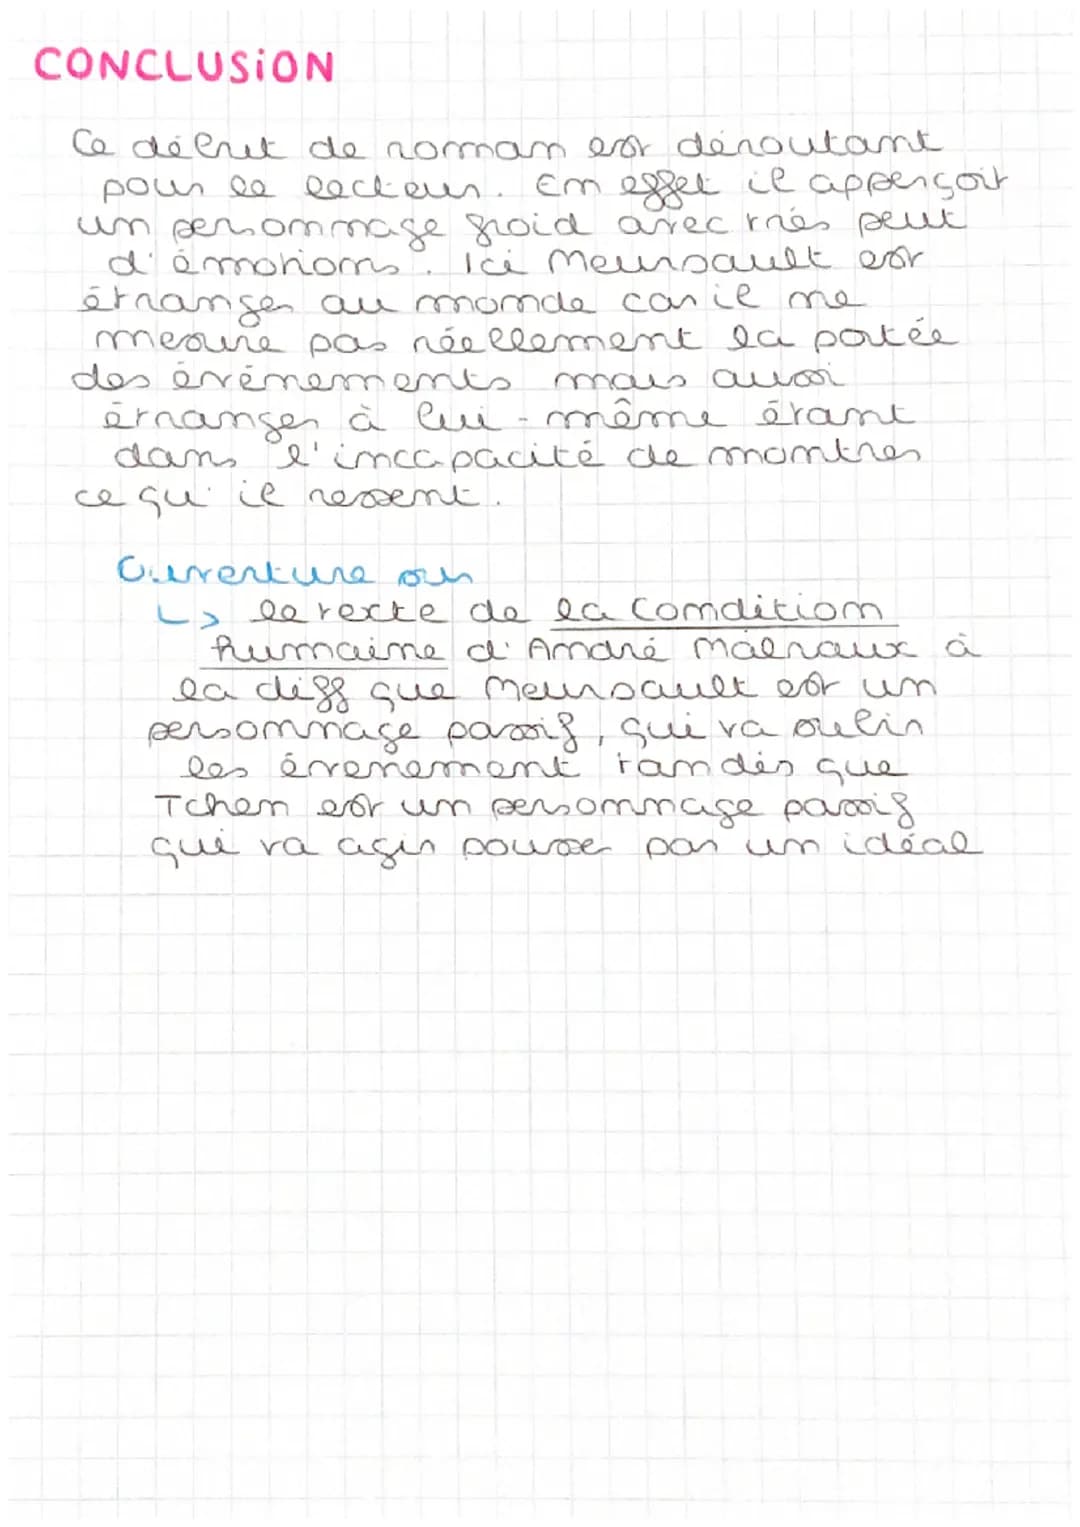 CONCLUSION
Ce début de roman est déroutant
pour le lecteur. En effet il apperçoit
un personnage froid avec très peut
d'émotions. Ici Meursault est
étranger au monde car il ne
mesure pas réellement la portée
des évènements mais aussi
étranger à lui-même étant
dans l'incapacité de montrer
ce qu'il ressent.
Ouverture sur
↳ le texte de la Condition
humaine d'André Malraux à
la diff que Meursault est un
personnage passif, qui va subir
les évenement tandis que
Tchen est un personnage passif
qui va agir pousser par un idéal